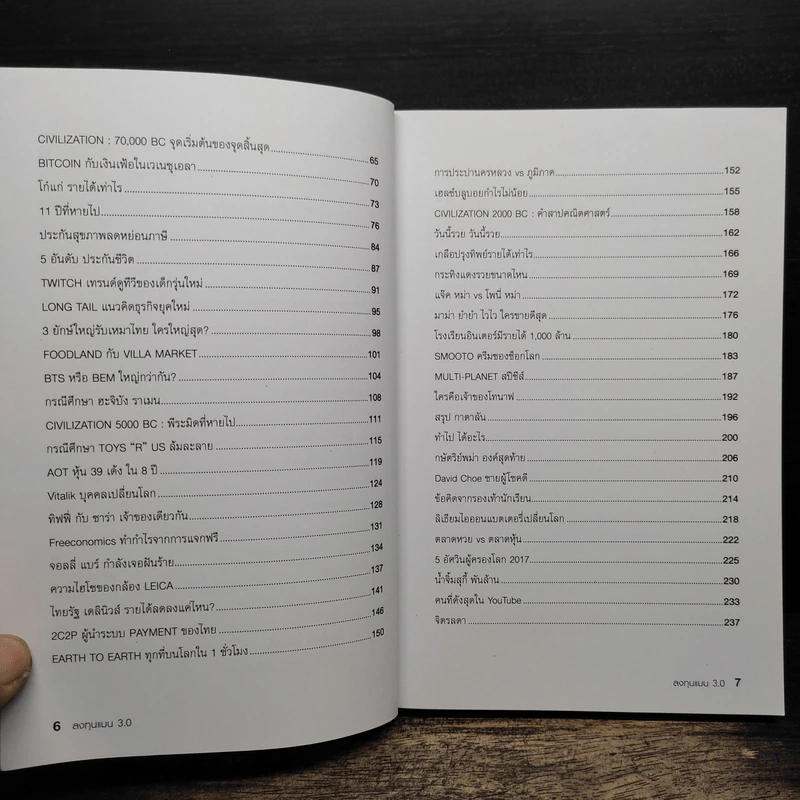 CIVILIZATION : 70,000 BC จุดเริ่มต้นของจุดสิ้นสุด 65
BITCOIN กับเงินเฟ้อในเวเนซุเอลา 70
โก๋แก่ รายได้เท่าไร 73
11 ปีที่หายไป 76
ประกันสุขภาพลดหย่อนภาษี 84
5 อันดับ ประกันชีวิต 87
TWITCH เทรนด์ดูทีวีของเด็กรุ่นใหม่ 91
LONG TAIL แนวคิดธุรกิจยุคใหม่ 95
3 ยักษ์ใหญ่รับเหมาไทย ใครใหญ่สุด? 98
FOODLAND กับ VILLA MARKET 101
BTS หรือ BEM ใหญ่กว่ากัน? 104
กรณีศึกษา ฮะจิบัง ราเมน 108
CIVILIZATION 5000 BC : พีระมิดที่หายไป 111
กรณีศึกษา TOYS “R” US ล้มละลาย 115
AOT หุ้น 39 เด้ง ใน 8 ปี 119
Vitalik บุคคลเปลี่ยนโลก 124
ทิฟฟี่ กับ ซาร่า เจ้าของเดียวกัน 128
Freeconomics ทำกำไรจากการแจกฟรี 131
จอลลี่ แบร์ กำลังเจอฝันร้าย 134
ความไฮโซของกล้อง LEICA 137
ไทยรัฐ เดลินิวส์ รายได้ลดลงแค่ไหน? 141
2C2P ผู้นำระบบ PAYMENT ของไทย 146
EARTH TO EARTH ทุกที่บนโลกใน 1 ชั่วโมง 150
6 ลงทุนแมน 3.0
การประปานครหลวง vs ภูมิภาค 152
เฮลซ์บลูบอยกำไรไม่น้อย 155
CIVILIZATION 2000 BC : คำสาปคณิตศาสตร์ 158
วันนี้รวย วันนี้รวย 162
เกลือปรุงทิพย์รายได้เท่าไร 166
กระทิงแดงรวยขนาดไหน 169
แจ๊ค หม่า vs โพนี่ หม่า 172
มาม่า ยำยำ ไวไว ใครขายดีสุด 176
โรงเรียนอินเตอร์มีรายได้ 1,000 ล้าน 180
SMOOTO ครีมซองช็อกโลก 183
MULTI-PLANET สปีชีส์ 187
ใครคือเจ้าของโทนาฟ 192
สรุป กาตาลัน 196
ทำไป ได้อะไร 200
กษัตริย์พม่า องค์สุดท้าย 206
David Choe ชายผู้โชคดี 210
ข้อคิดจากรองเท้านักเรียน 214
ลิเธียมไอออนแบตเตอรี่เปลี่ยนโลก 218
ตลาดหวย vs ตลาดหุ้น 222
5 อัศวินผู้ครองโลก 2017 225
น้ำจิ้มสุกี้ พันล้าน 230
คนที่ดังสุดใน YouTube 233
จิตรลดา 237
ลงทุนแมน 3.0 7